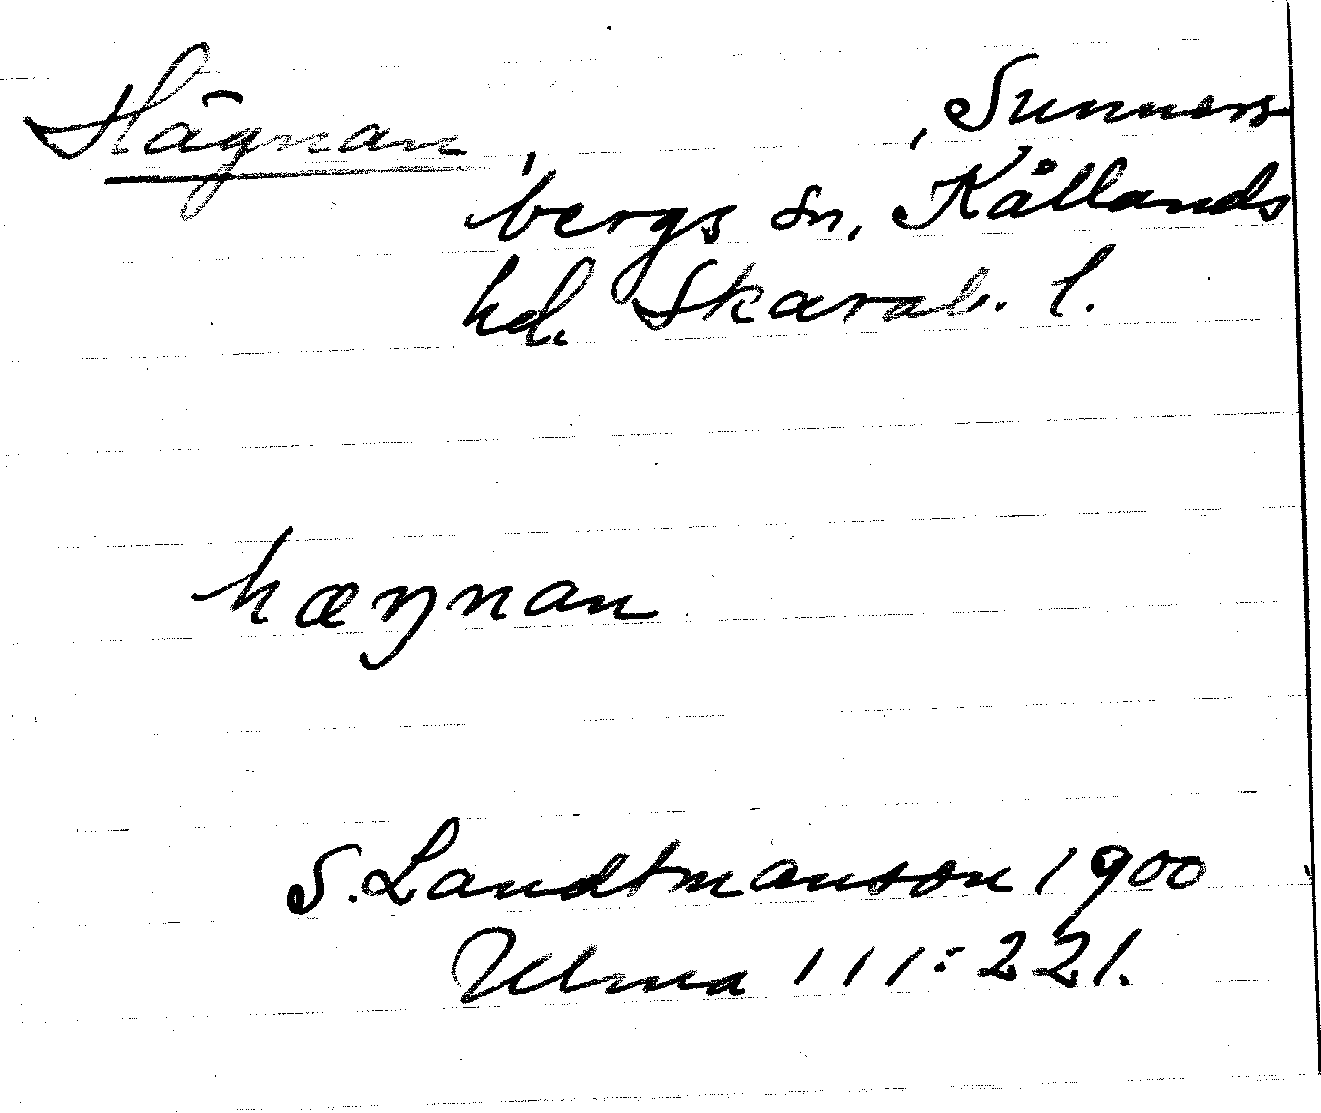 Hägnan, , Sunners-
bergs sn, Kållands
hd. Skarab. l.
hæŋnan
S. Landtmanson 1900
Ulma 111:221.